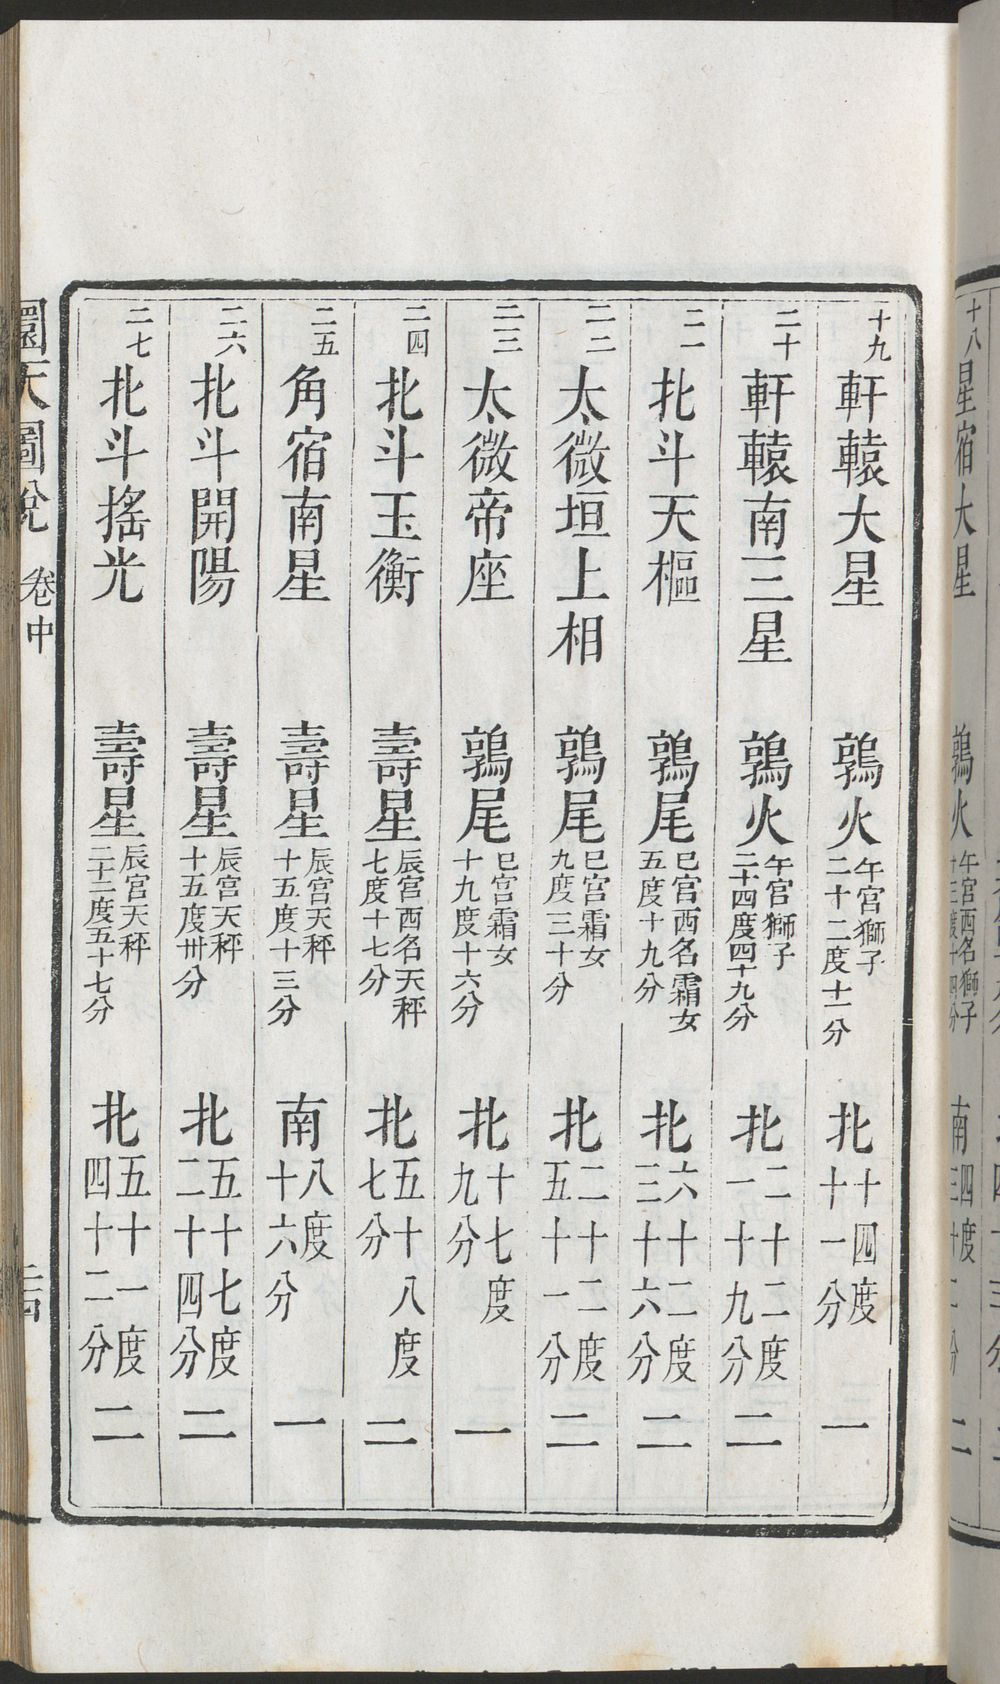 十九 軒轅大星 鶉火 午宮獅子二十二度十一分 北 十四度十一分 一
二十 軒轅南三星 鶉火 午宮獅子二十四度四十九分 北 二十二度一十九分 二
二一 北斗天樞 鶉尾 巳宮西名霜女五度十九分 北 六十二度三十六分 二
二二 太微垣上相 鶉尾 巳宮霜女九度三十分 北 二十二度五十一分 二
二三 太微帝座 鶉尾 巳宮霜女十九度十六分 北 十七度九分 一
二四 北斗玉衡 壽星 辰宮西名天秤七度十七分 北 五十八度七分 二
二五 角宿南星 壽星 辰宮天秤十五度十三分 南 八度十六分 一
二六 北斗開陽 壽星 辰宮天秤十五度卅分 北 五十七度二十四分 二
二七 北斗搖光 壽星 辰宮天秤二十二度五十七分 北 五十一度四十二分 二
圜天圖說 卷中
十八 星宿大星 鶉火 午宮西名獅子 南 四度 二